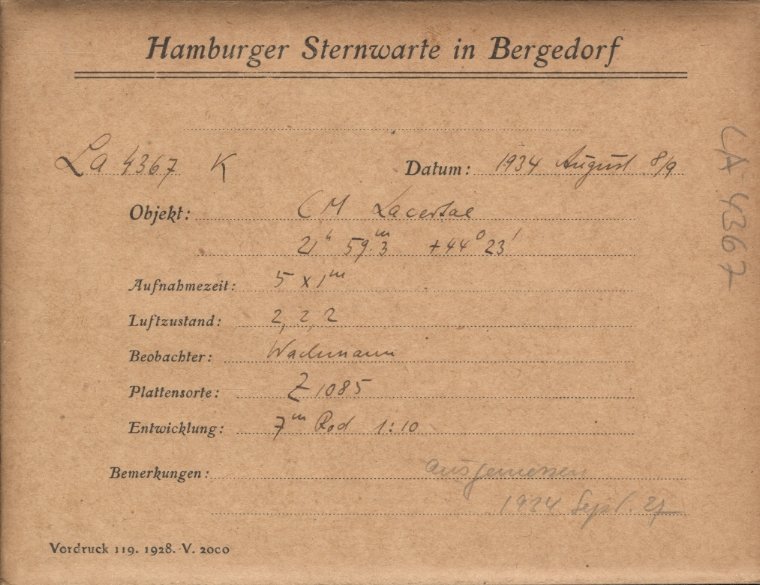 Hamburger Sternwarte in Bergedorf
La 4367 K Datum: 1934 August 8/9
Objekt: CM Lacertae
21h 59.m3 +44° 23'
Aufnahmezeit: 5 x 1m
Luftzustand: 2, 2, 2
Beobachter: Wachmann
Plattensorte: Z 1085
Entwicklung: 7m Rod 1:10
Bemerkungen: ausgemessen
1934 Sept. 27
Vordruck 119. 1928. V. 2000
LA 4367